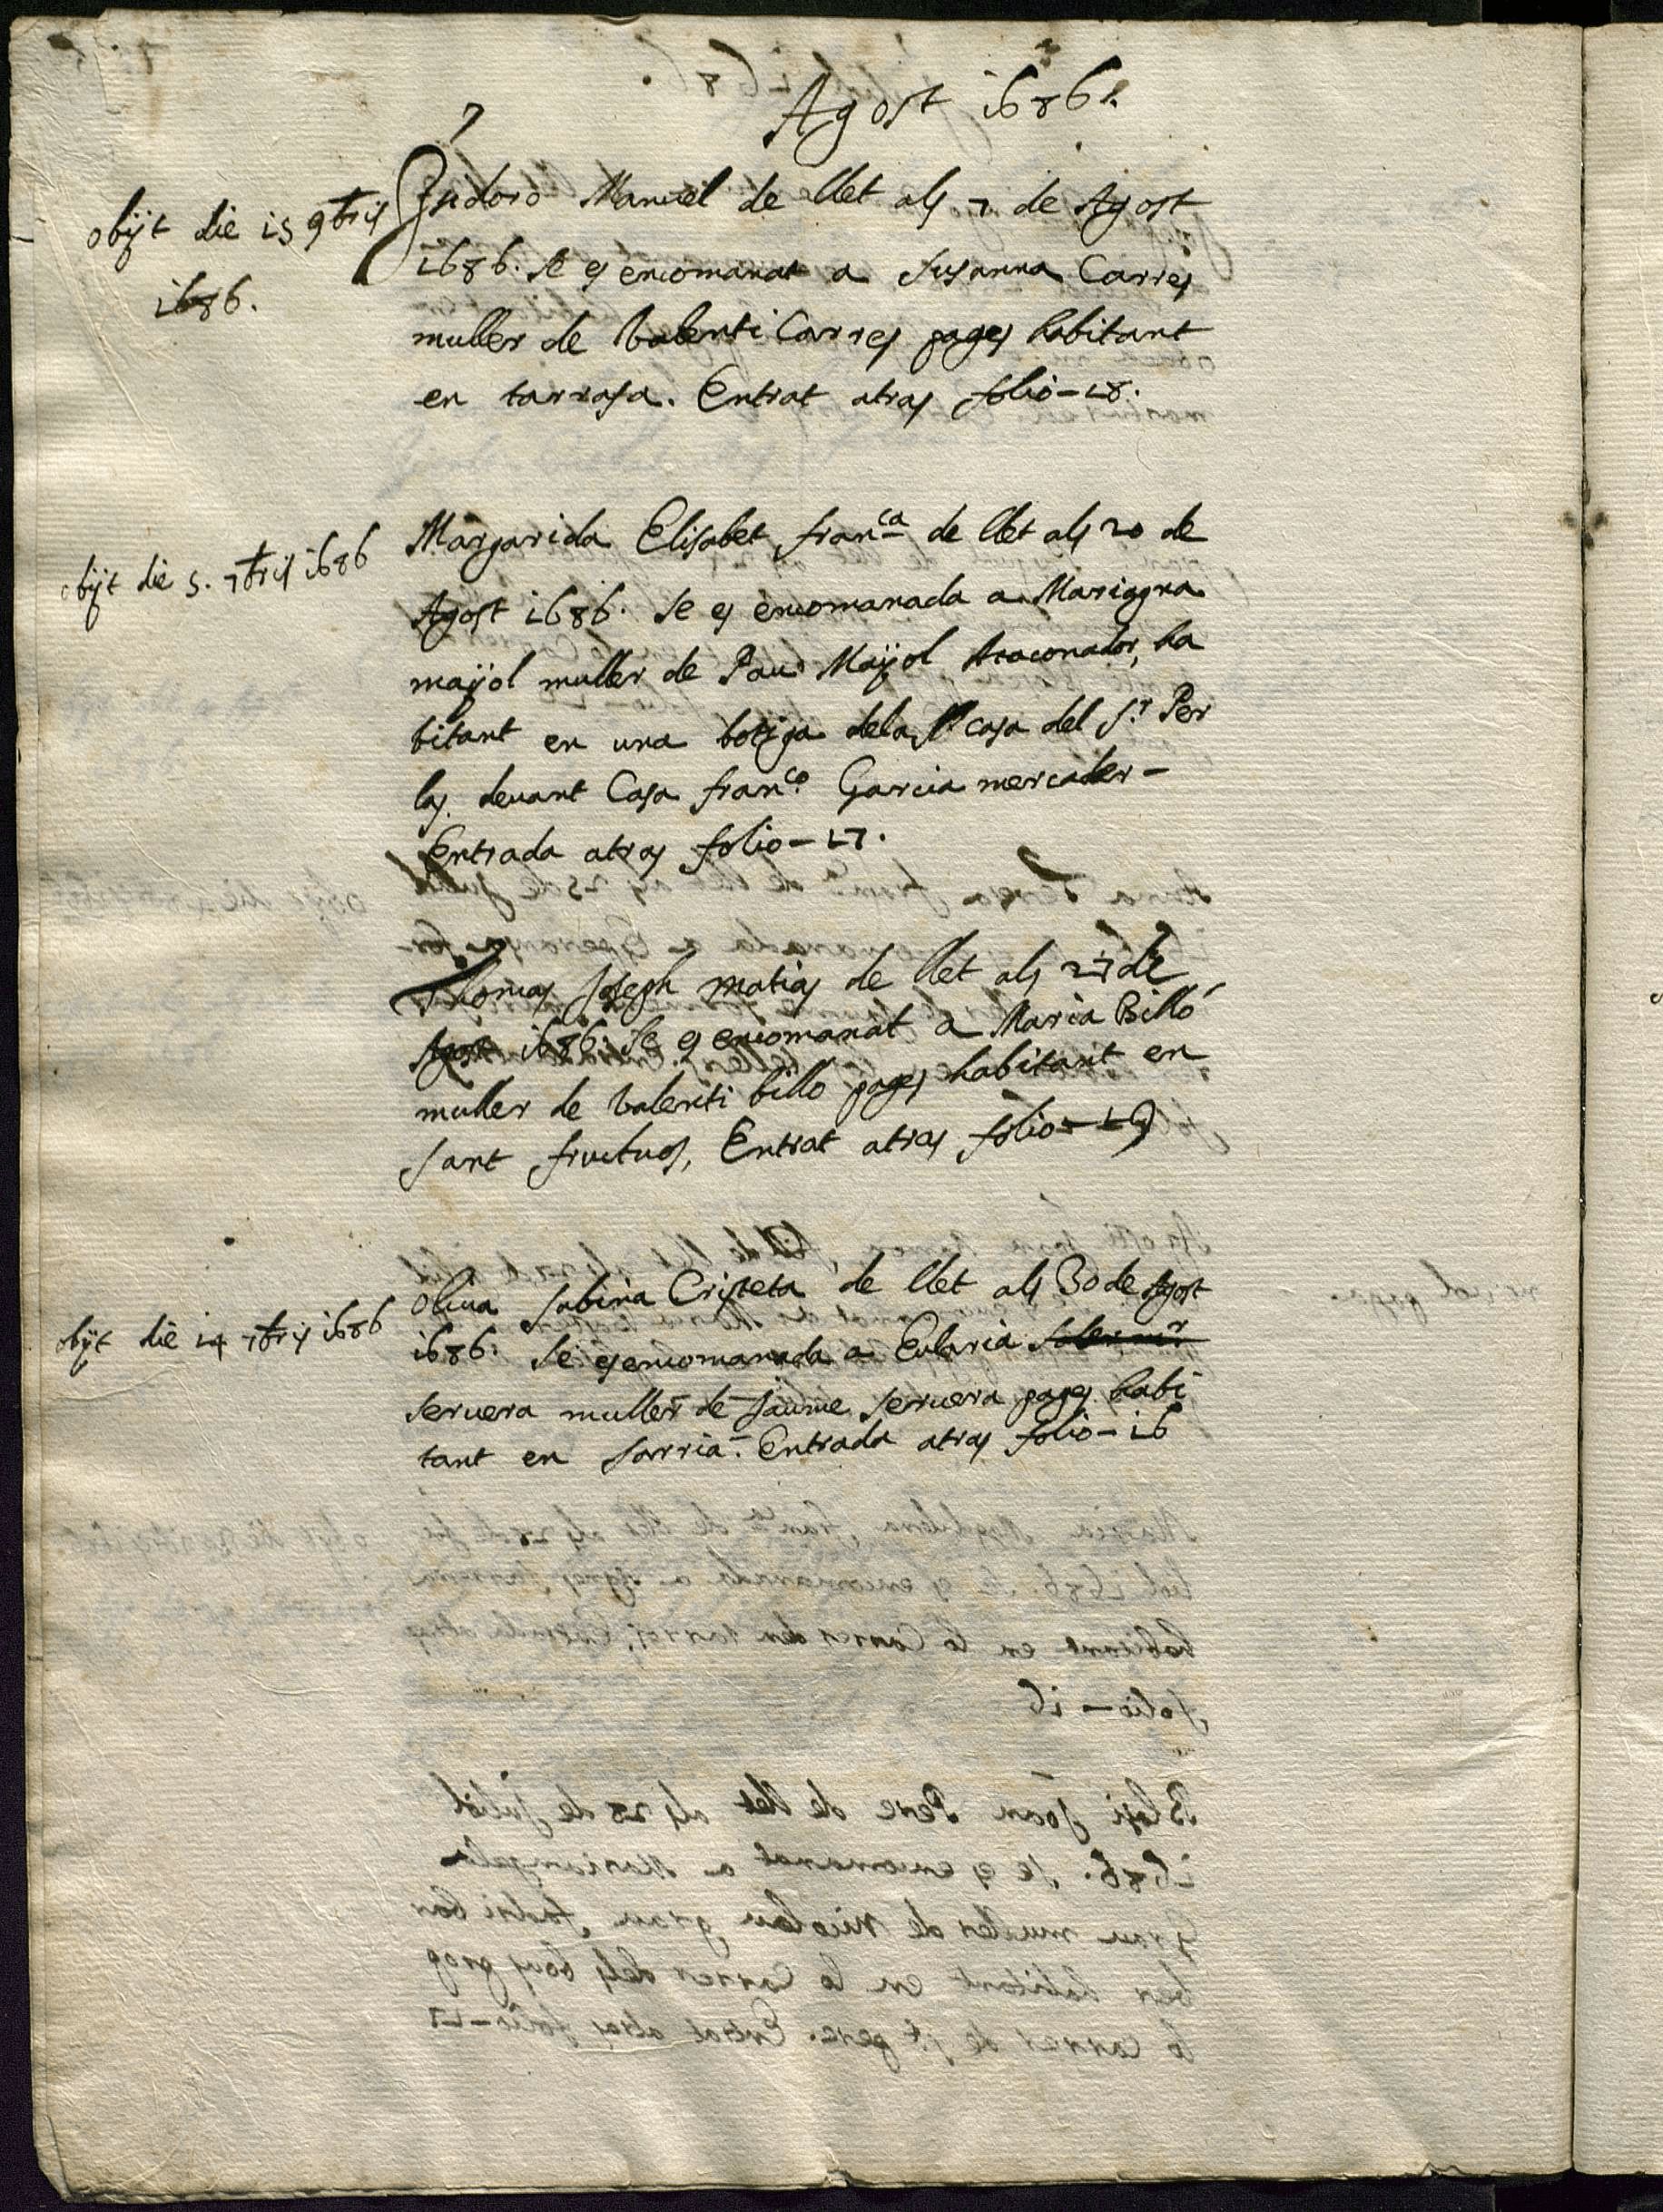 Agost 1686.
obijt die 15 9bris
1686.
Isidoro Manuel de llet als 7 de Agost
1686. se es encomanat a Susanna Carres
muller de Valenti Carres pages habitant
en tarrasa. Entrat atras folio - 18.
obijt die 5. 7bris 1686
Margarida Elisabet fran.ca de llet als 20 de
Agost 1686. se es encomanada a Mariagna
maÿol muller de Pau Maÿol Assaonador, ha
bitant en una botiga dela casa del s.r Per
las. devant Casa fran.co Garcia mercader -
Entrada atras folio - 17.
Thomas Joseph matias de llet als 27 de
Agost 1686. se es encomanat a Maria Billó
muller de Valenti billo pages habitant en
sant fructuos, Entrat atras folio - 19
obijt die 14 7bris 1686
Oliva Sabina Cristeta de llet als 30 de Agost
1686. se es encomanada a Eularia
servera muller de Jaume servera pages habi
tant en sarria. Entrada atras folio - 16